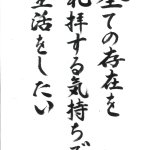 全ての存在を
礼拝する気持ちで
生活をしたい